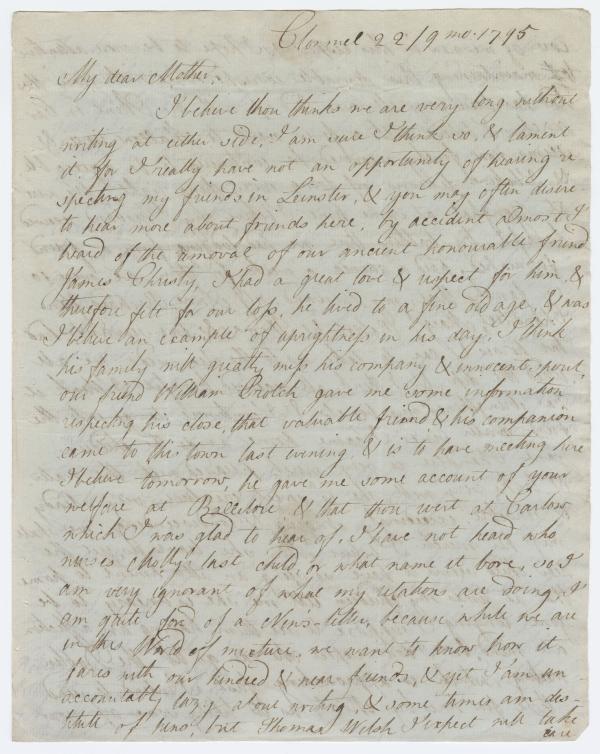 Clonmel 22/9mo. 1795
My dear Mother,
I believe thou thinks we are very long without
writing at either side, I am sure I think so, & lament
it for I really have not an opportunity of hearing re
specting my friends in Leinster, & you may often desire
to hear more about friends here, by accident almost I
heard of the removal of our ancient honourable friend
James Christy, I had a great love & respect for him, &
therefore felt for our loss, he lived to a fine old age, & was
I believe an example of uprightness in his day, I think
his family will greatly miss his company & innocent
our friend William Crotch gave me some information
respecting his close, that valuable friend & his companion
came to this town last evening, & is to have meeting here
I believe tomorrow, he gave me some account of your
welfare at Ballitore, & that thou wert at Carlow,
which I was glad to hear of, I have not heard who
nurses Molly's last child, or what name it bore, so I
am very ignorant of what my relations are doing, I
am quite fond of a News-letter, because while we are
in this World of mixture, we want to know how it
fares with our kindred & near friends, & yet I am un-
accountably lazy about writing, & some times am des-
titute of time, but Thomas Welsh I expect will take
care